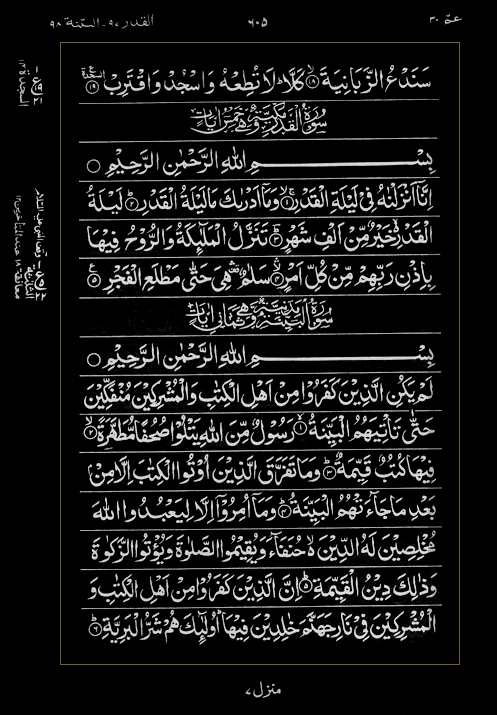 عمّ ٣٠
٦٠٥
القدر ٩٧ - البيّنة ٩٨
سَنَدْعُ الزَّبَانِيَةَ ۙ﴿۱۸﴾ كَلَّا ؕ لَا تُطِعْهُ وَاسْجُدْ وَاقْتَرِبْ ۩﴿۱۹﴾
سُوْرَةُ الْقَدْرِ مَكِّيَّةٌ وَّهِيَ خَمْسُ اٰيَاتٍ
بِسْــــــــمِ اللّٰهِ الرَّحْمٰنِ الرَّحِيْمِ ○
اِنَّاۤ اَنْزَلْنٰهُ فِيْ لَيْلَةِ الْقَدْرِ ۚ﴿۱﴾ وَمَاۤ اَدْرٰىكَ مَا لَيْلَةُ الْقَدْرِ ؕ﴿۲﴾ لَيْلَةُ
الْقَدْرِ ۙ خَيْرٌ مِّنْ اَلْفِ شَهْرٍ ؕ﴿۳﴾ تَنَزَّلُ الْمَلٰٓئِكَةُ وَالرُّوْحُ فِيْهَا
بِاِذْنِ رَبِّهِمْ مِّنْ كُلِّ اَمْرٍ ۙ﴿۴﴾ سَلٰمٌ ۛ هِيَ حَتّٰى مَطْلَعِ الْفَجْرِ ﴿۵﴾
سُوْرَةُ الْبَيِّنَةِ مَدَنِيَّةٌ وَّهِيَ ثَمَانِيْ اٰيَاتٍ
بِسْــــــــمِ اللّٰهِ الرَّحْمٰنِ الرَّحِيْمِ ○
لَمْ يَكُنِ الَّذِيْنَ كَفَرُوْا مِنْ اَهْلِ الْكِتٰبِ وَالْمُشْرِكِيْنَ مُنْفَكِّيْنَ
حَتّٰى تَاْتِيَهُمُ الْبَيِّنَةُ ۙ﴿۱﴾ رَسُوْلٌ مِّنَ اللّٰهِ يَتْلُوْا صُحُفًا مُّطَهَّرَةً ۙ﴿۲﴾
فِيْهَا كُتُبٌ قَيِّمَةٌ ؕ﴿۳﴾ وَمَا تَفَرَّقَ الَّذِيْنَ اُوْتُوا الْكِتٰبَ اِلَّا مِنْۢ
بَعْدِ مَا جَآءَتْهُمُ الْبَيِّنَةُ ؕ﴿۴﴾ وَمَاۤ اُمِرُوْۤا اِلَّا لِيَعْبُدُوا اللّٰهَ
مُخْلِصِيْنَ لَهُ الدِّيْنَ ۙ حُنَفَآءَ وَيُقِيْمُوا الصَّلٰوةَ وَيُؤْتُوا الزَّكٰوةَ
وَذٰلِكَ دِيْنُ الْقَيِّمَةِ ؕ﴿۵﴾ اِنَّ الَّذِيْنَ كَفَرُوْا مِنْ اَهْلِ الْكِتٰبِ وَ
الْمُشْرِكِيْنَ فِيْ نَارِ جَهَنَّمَ خٰلِدِيْنَ فِيْهَا ؕ اُولٰٓئِكَ هُمْ شَرُّ الْبَرِيَّةِ ؕ﴿۶﴾
السجدة ١٤
منزل ٧